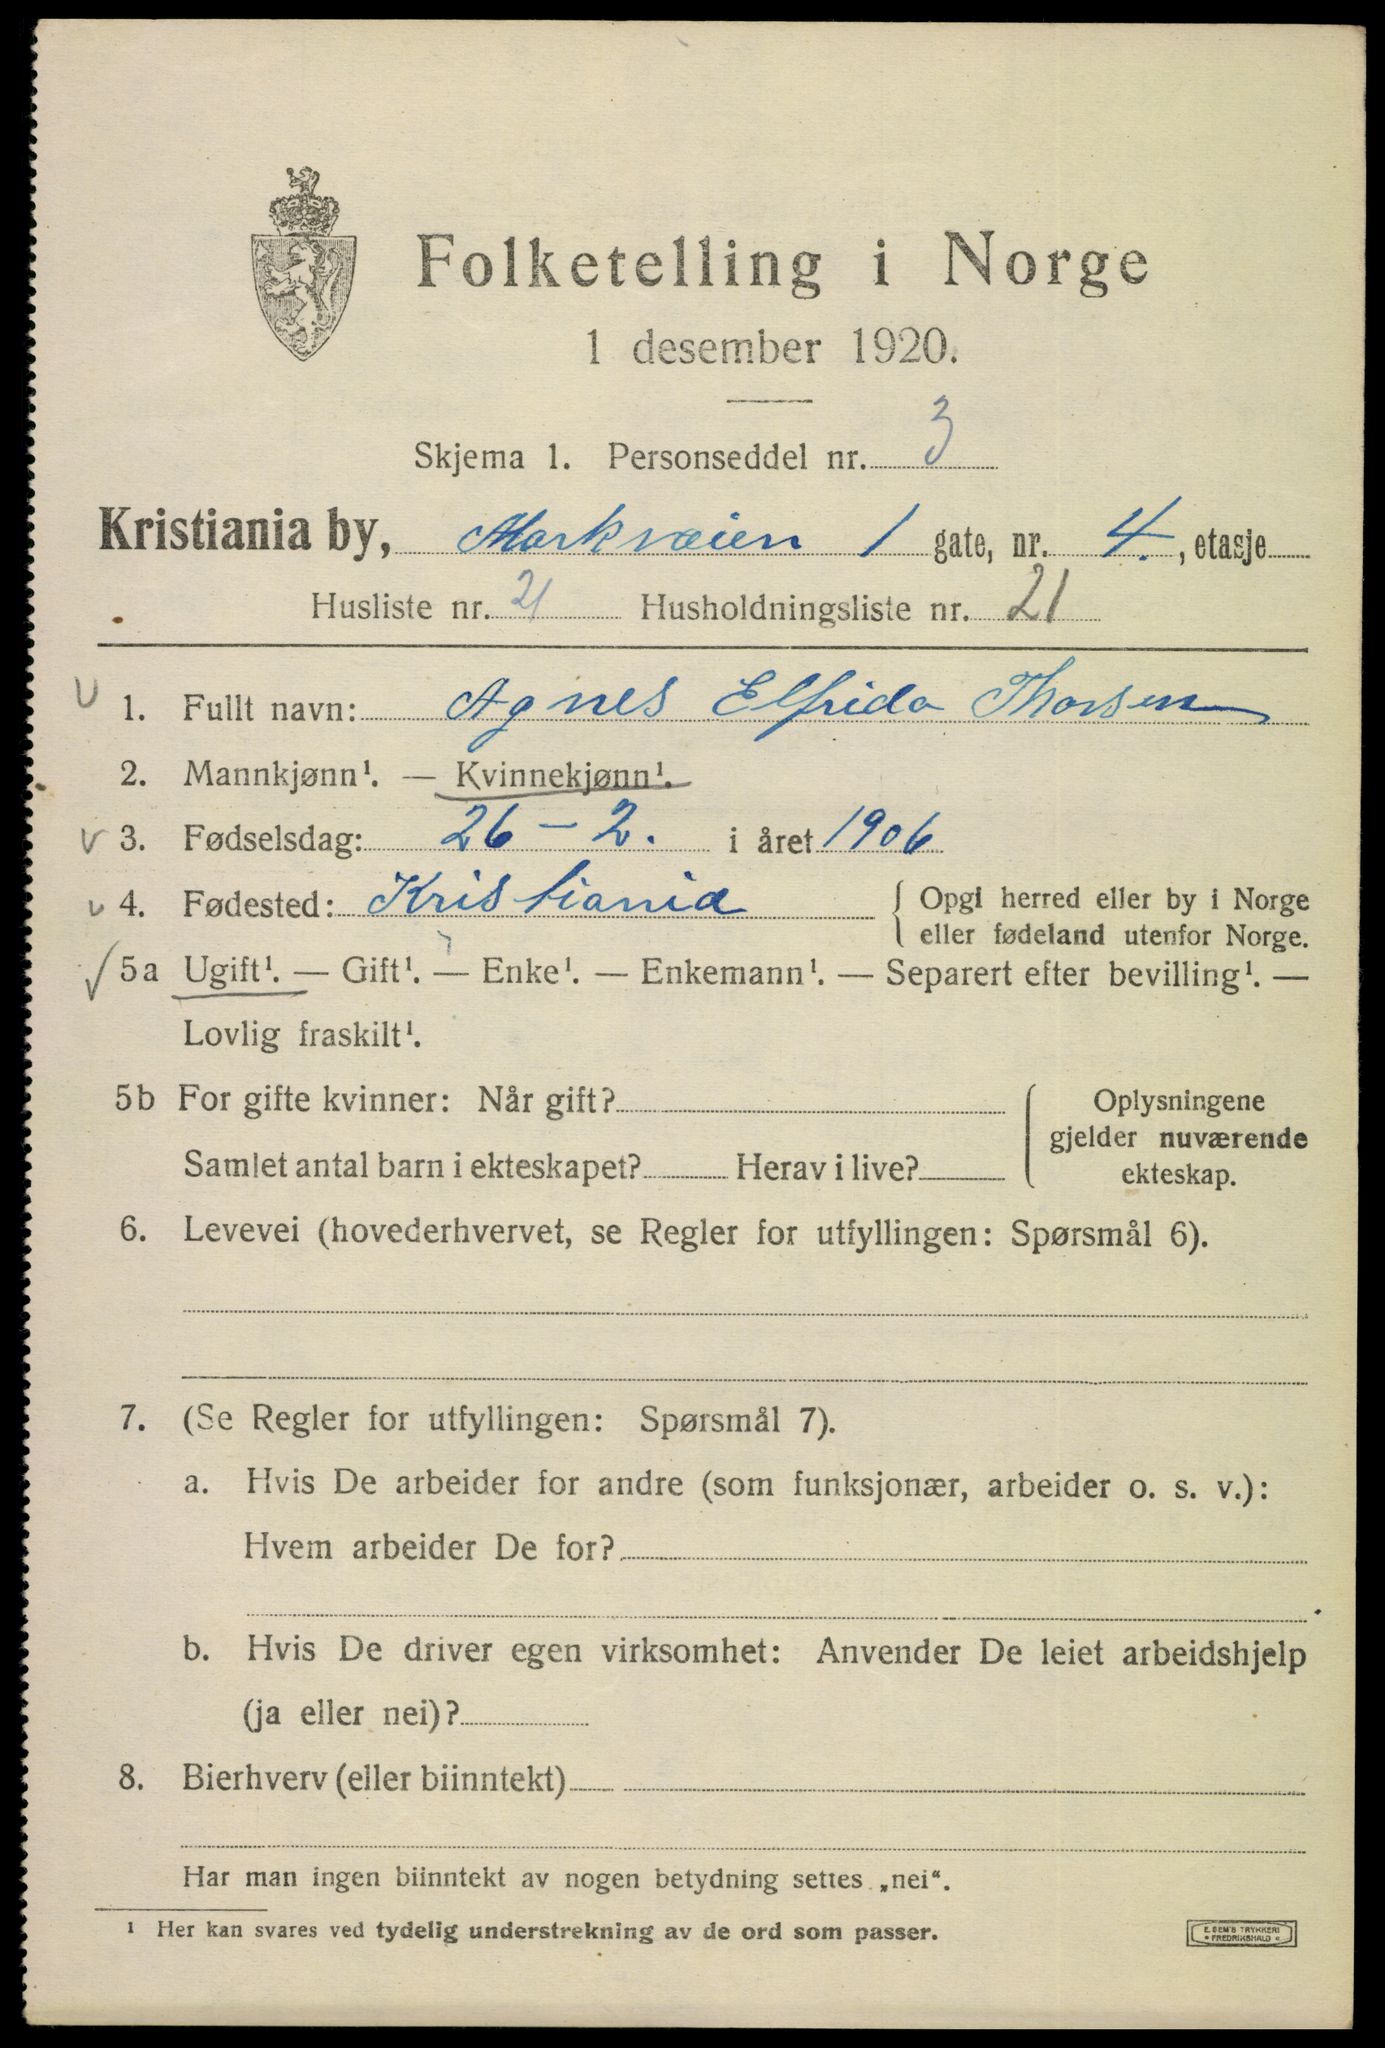 Folketelling i Norge
1 desember 1920.
Skjema 1. Personseddel nr. 3
Kristiania by, Markveien 1 gate, nr. 4., etasje
Husliste nr. 21 Husholdningsliste nr. 21
1. Fullt navn: Agnes Elfrida Thorsen
2. Mannkjønn¹. — Kvinnekjønn¹.
3. Fødselsdag: 26 – 2. i året 1906
4. Fødested: Kristiania { Opgi herred eller by i Norge
eller fødeland utenfor Norge.
5a Ugift¹. — Gift¹. — Enke¹. — Enkemann¹. — Separert efter bevilling¹. —
Lovlig fraskilt¹.
5b For gifte kvinner: Når gift? { Oplysningene
gjelder nuværende
Samlet antal barn i ekteskapet? Herav i live? ekteskap.
6. Levevei (hovederhvervet, se Regler for utfyllingen: Spørsmål 6).
7. (Se Regler for utfyllingen: Spørsmål 7).
a. Hvis De arbeider for andre (som funksjonær, arbeider o. s. v.):
Hvem arbeider De for?
b. Hvis De driver egen virksomhet: Anvender De leiet arbeidshjelp
(ja eller nei)?
8. Bierhverv (eller biinntekt)
Har man ingen biinntekt av nogen betydning settes „nei“.
¹ Her kan svares ved tydelig understrekning av de ord som passer.
E. SEM'S TRYKKERI
FREDRIKSHALD